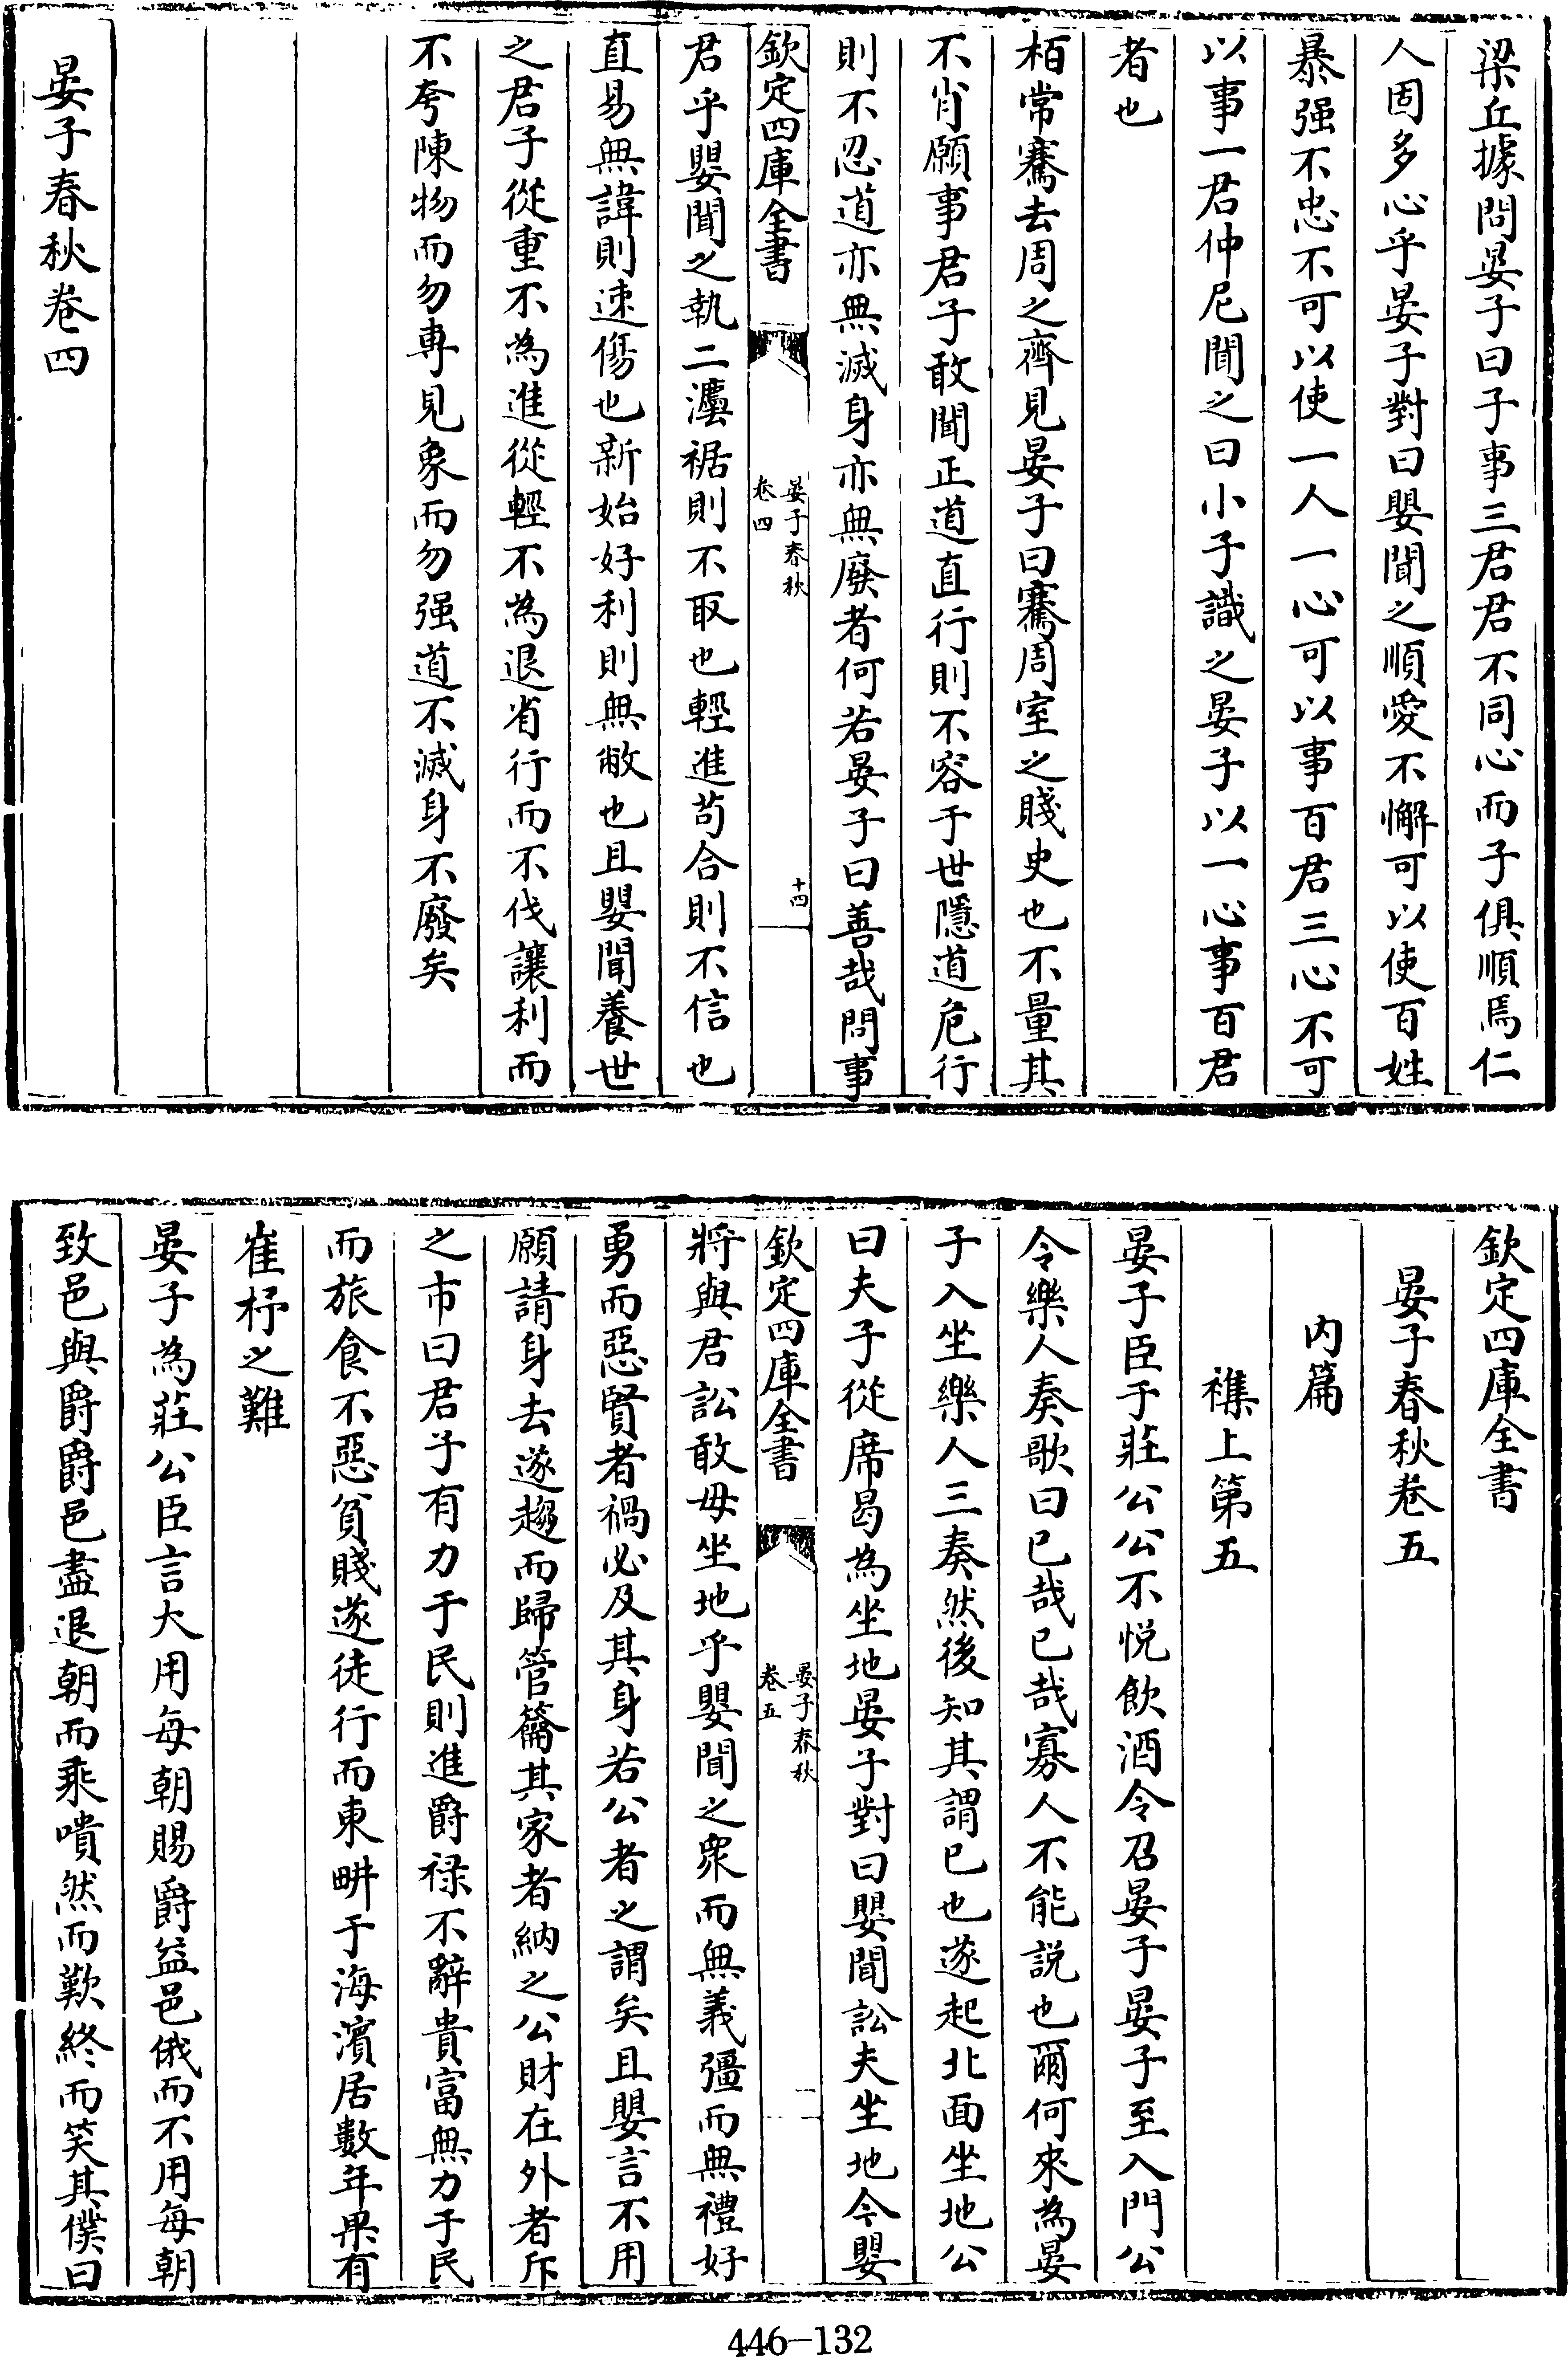 梁丘據問晏子曰子事三君君不同心而子俱順焉仁
人固多心乎晏子對曰嬰聞之順愛不懈可以使百姓
暴强不忠不可以使一人一心可以事百君三心不可
以事一君仲尼聞之曰小子識之晏子以一心事百君
者也
柏常騫去周之齊見晏子曰騫周室之賤史也不量其
不肖願事君子敢聞正道直行則不容于世隱道危行
則不忍道亦無滅身亦無廢者何若晏子曰善哉問事
欽定四庫全書
晏子春秋
卷四
十四
君乎嬰聞之執二灋裾則不取也輕進茍合則不信也
直易無諱則速傷也新始好利則無敝也且嬰聞養世
之君子從重不為進從輕不為退省行而不伐讓利而
不夸陳物而勿專見象而勿强道不滅身不廢矣
晏子春秋卷四
欽定四庫全書
晏子春秋卷五
內篇
襍上第五
晏子臣于莊公公不悅飲酒令召晏子晏子至入門公
令樂人奏歌曰已哉已哉寡人不能說也爾何來為晏
子入坐樂人三奏然後知其謂已也遂起北面坐地公
曰夫子從席曷為坐地晏子對曰嬰聞訟夫坐地今嬰
欽定四庫全書
晏子春秋
卷五
一
將與君訟敢毋坐地乎嬰聞之衆而無義彊而無禮好
勇而惡賢者禍必及其身若公者之謂矣且嬰言不用
願請身去遂趨而歸管籥其家者納之公財在外者斥
之市曰君子有力于民則進爵禄不辭貴富無力于民
而旅食不惡貧賤遂徒行而東畊于海濱居數年果有
崔杼之難
晏子為莊公臣言大用每朝賜爵益邑俄而不用每朝
致邑與爵爵邑盡退朝而乘嘳然而歎終而笑其僕曰
446-132